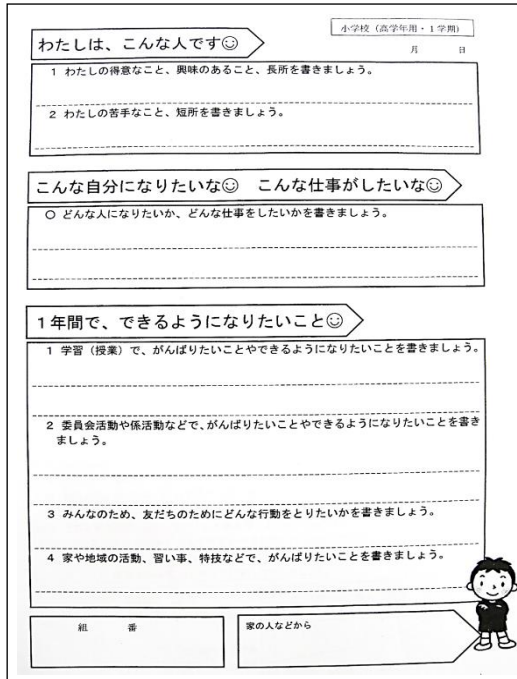 小学校（高学年用・1学期）
月　　日
わたしは、こんな人です☺
1 わたしの得意なこと、興味のあること、長所を書きましょう。
2 わたしの苦手なこと、短所を書きましょう。
こんな自分になりたいな☺　こんな仕事がしたいな☺
○ どんな人になりたいか、どんな仕事をしたいかを書きましょう。
1年間で、できるようになりたいこと☺
1 学習（授業）で、がんばりたいことやできるようになりたいことを書きましょう。
2 委員会活動や係活動などで、がんばりたいことやできるようになりたいことを書き
ましょう。
3 みんなのため、友だちのためにどんな行動をとりたいかを書きましょう。
4 家や地域の活動、習い事、特技などで、がんばりたいことを書きましょう。
組　　番
家の人などから